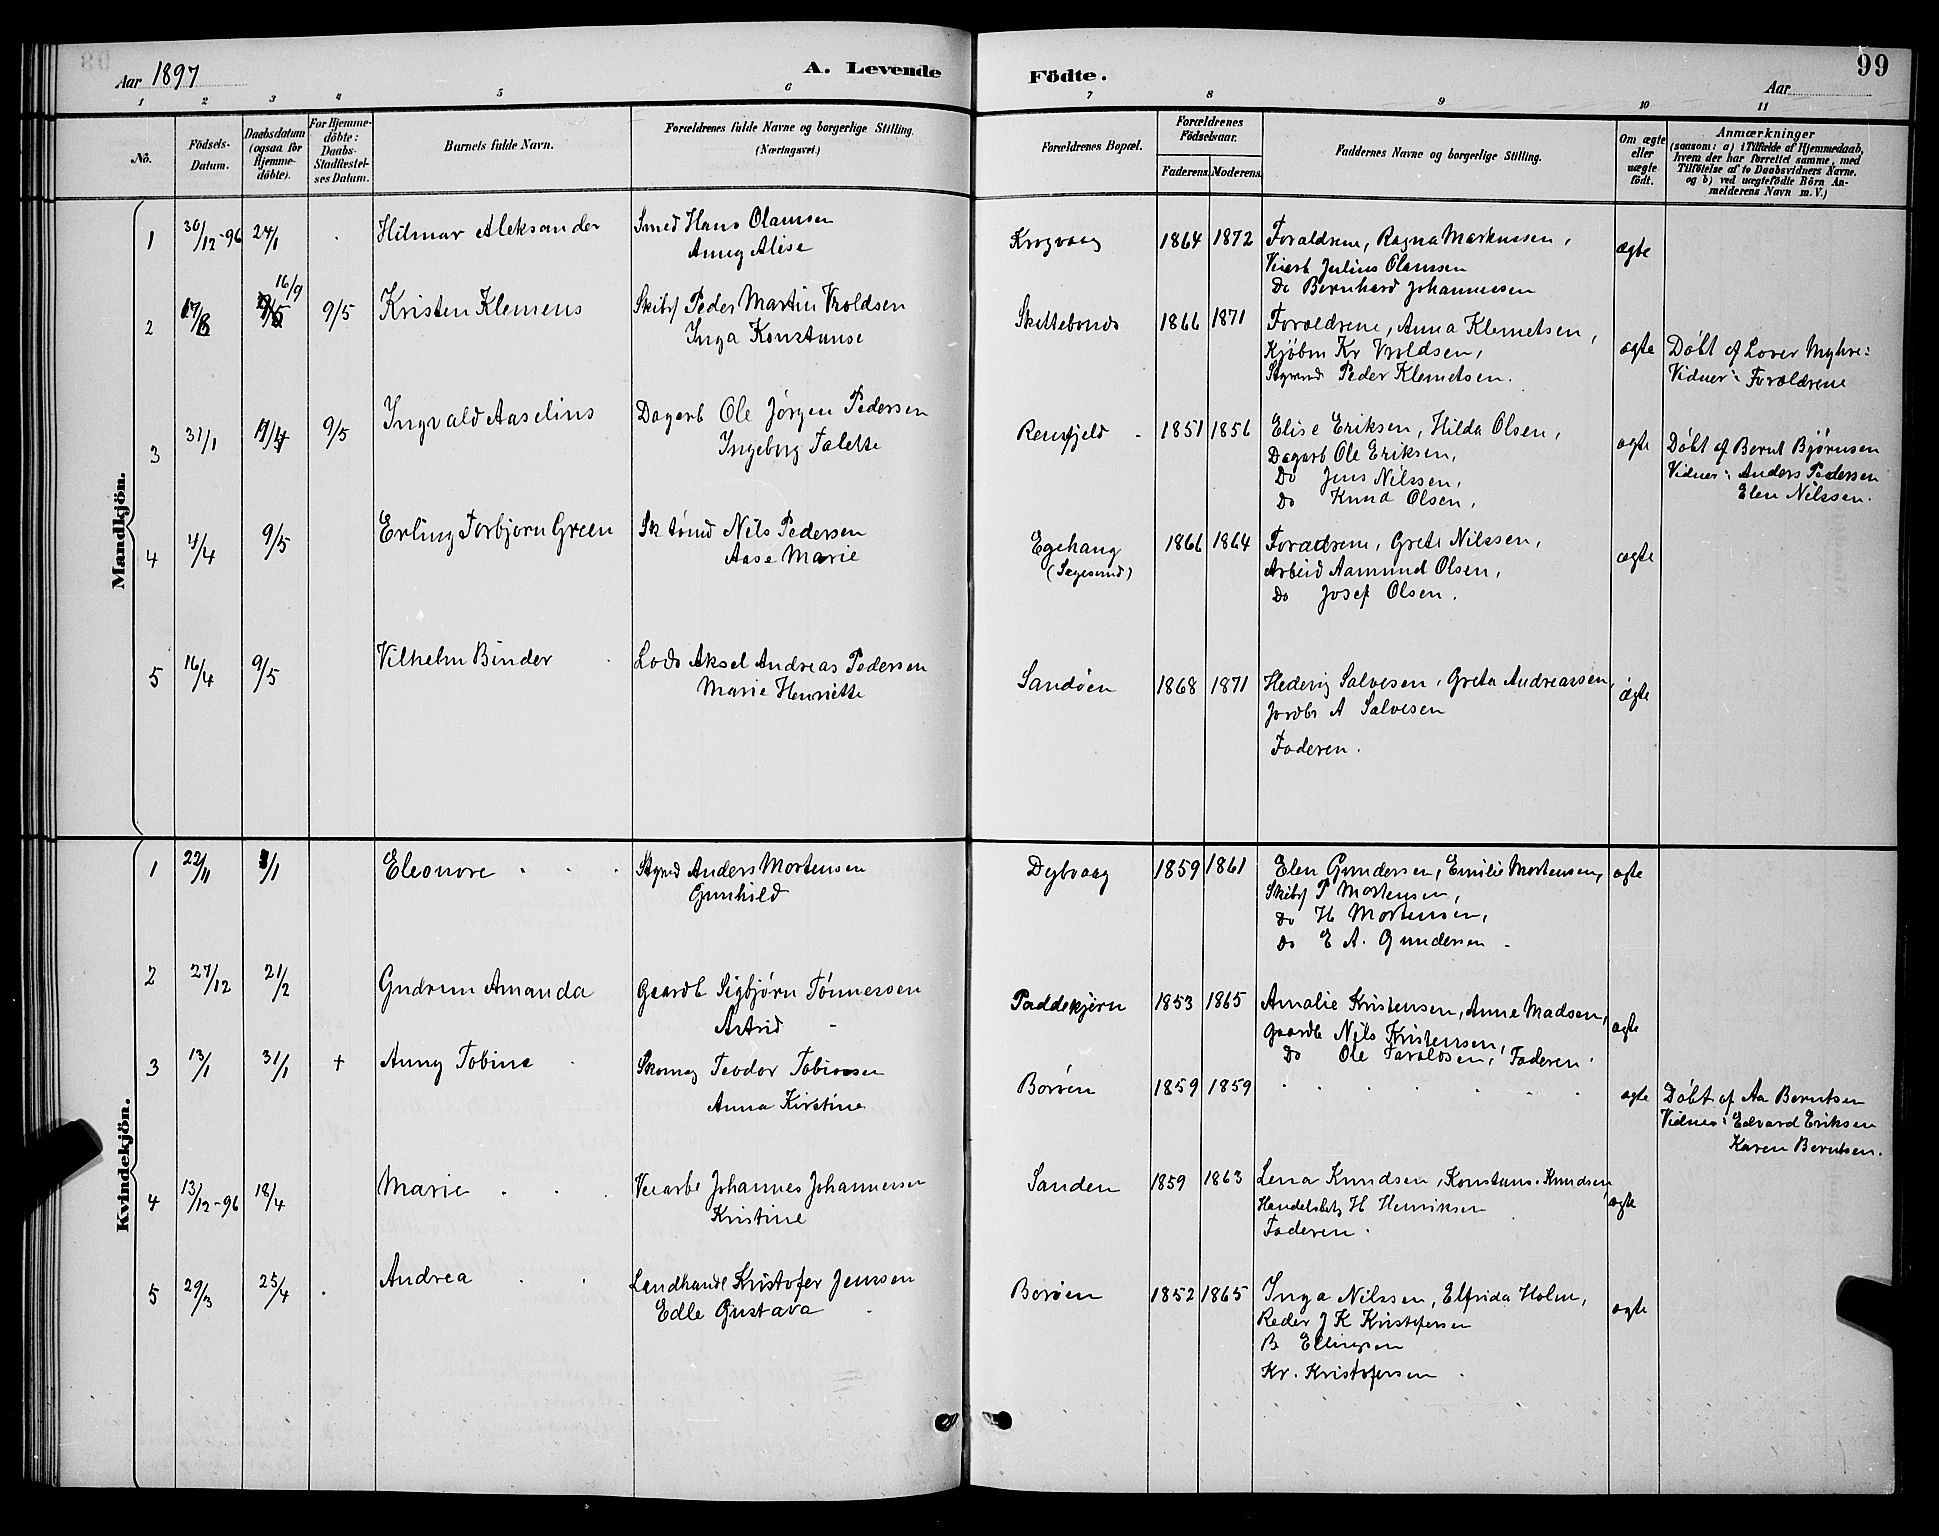 Aar 1897
A. Levende Födte.
Aar
99
1 2 3 4 5 6 7 8 9 10 11
No.
Födsels-Datum.
Daabsdatum (ogsaa for Hjemme-döbte).
For Hjemme-döbte: Daabs-Stadfæstel-ses Datum.
Barnets fulde Navn.
Forældrenes fulde Navne og borgerlige Stilling.
(Næringsvei.)
Forældrenes Bopæl.
Forældrenes Födselsaar.
Faderens. Moderens.
Faddernes Navne og borgerlige Stilling.
Om ægte eller uægte födt.
Anmærkninger
(saasom: a) i Tilfælde af Hjemmedaab,
hvem der har forrettet samme, med
Tilföielse af to Daabsvidners Navne.
og b) ved uægtefödte Börn An-
melderens Navn m. V.)
Mandkjön.
1 30/12-96 24/1 Hilmar Aleksander Smed Hans Olamsen Krogvaag 1864 1872 Forældrene, Ragna Markussen, ægte
Anny Alise
Veiarb Julius Olamsen
Do Bernhard Johannessen
2 17/8 16/9 9/5 Kristen Klemens Skibsf Peder Martin Vroldsen 1866 1871 Forældrene, Anna Klemetsen, ægte
Inga Konstanse
Kjøbm Kr Vroldsen,
Styrmd Peder Klemetsen.
Döbt af Lærer Myhre:
Vidner: Forældrene
3 31/1 9/5 Ingvald Aaselius Dagarb Ole Jörgen Pedersen Rensfjeld 1851 1856 Elise Eriksen, Hilda Olsen, ægte
Ingeborg Talette
Dagarb Ole Eriksen,
Do Jens Nilssen,
Do Knud Olsen,
Döbt af Bernt Björnsen
Vidner: Anders Pedersen
Elen Nilssen.
4 4/4 9/5 Erling Torbjorn Green Nils Pedersen Egehaug 1866 1864 Forældrene, Grete Nilssen, ægte
Aase Marie
(Sagesund)
Arbeid Aamund Olsen,
Do Josef Olsen.
5 16/4 9/5 Vilhelm Binder Lods Aksel Andreas Pedersen Sandöen 1868 1871 Hedevig Salvesen, Greta Andreassen, ægte
Marie Henriette
Jordbr A Salvesen
Faderen.
Kvindekjön.
1 22/11 3/1 Eleonore Styrmd Anders Mortensen Dybvaag 1859 1861 Elen Gundersen, Emilie Mortensen, ægte
Gunhild
Skibsf P Mortensen,
Do H Mortensen,
Do E A. Gundersen
2 27/12 21/2 Gudrun Amanda Gaardb Sigbjörn Tönnessen Paddekjern 1853 1865 Amalie Kristensen, Anne Madsen, ægte
Astrid
Gaardb Nils Kristensen,
Do Ole Taraldsen, Faderen
3 13/1 31/1 + Anny Tobine Skomag Teodor Tobiassen Boröen 1859 1859 ægte
Anna Kirstine
Döbt af Aa Berntsen
Vidner: Edvard Eriksen
Karen Berntsen.
4 13/12-96 18/4 Marie Veiarbe Johannes Johannessen Sanden 1859 1863 Lena Knudsen, Konstans Knudsen, ægte
Kristine
Handelsbetj H Henriksen
Faderen.
5 29/3 25/4 Andrea Landhandl Kristofer Jenssen Boröen 1852 1865 Inga Nilssen, Elfrida Holm, ægte
Edle Gustava
Reder J K Kristofersen
B Ellingsen
Kr. Kristofersen